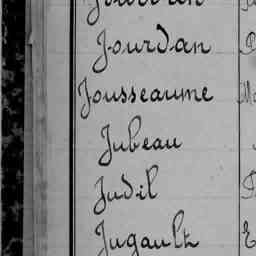 Jourdan
Jousseaume
Jubeau
Judil
Jugault